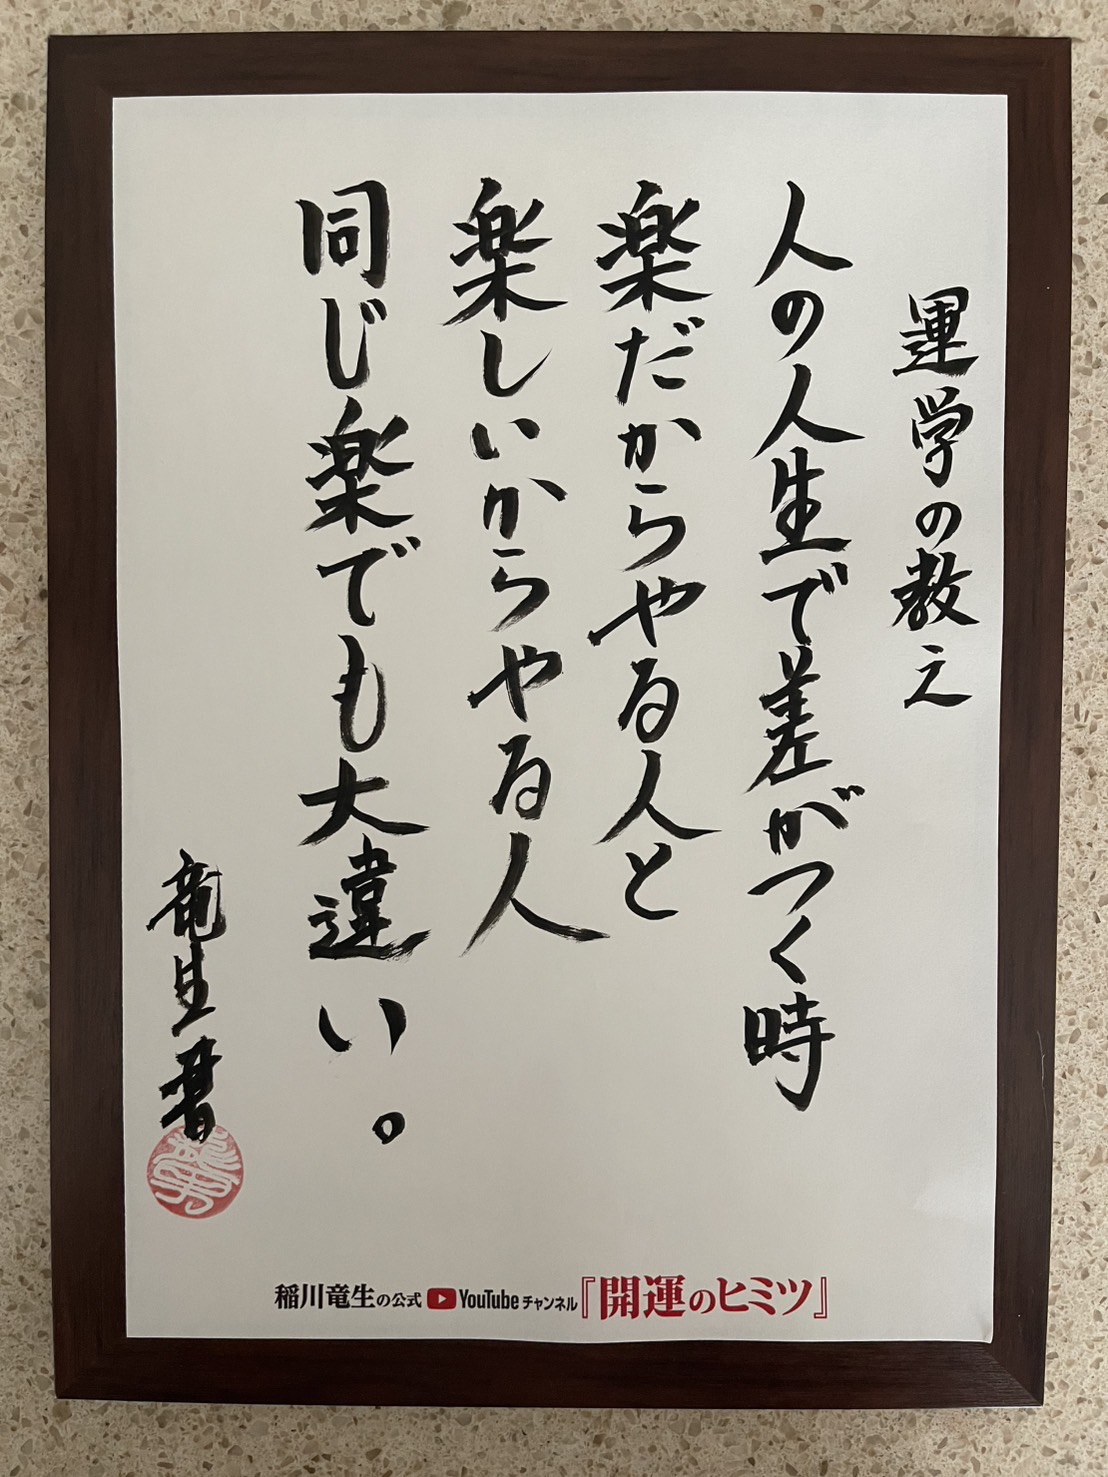 運学の教え
人の人生で差がつく時
楽だからやる人と
楽しいからやる人
同じ楽でも大違い。
竜生書
稲川竜生の公式 YouTube チャンネル『開運のヒミツ』